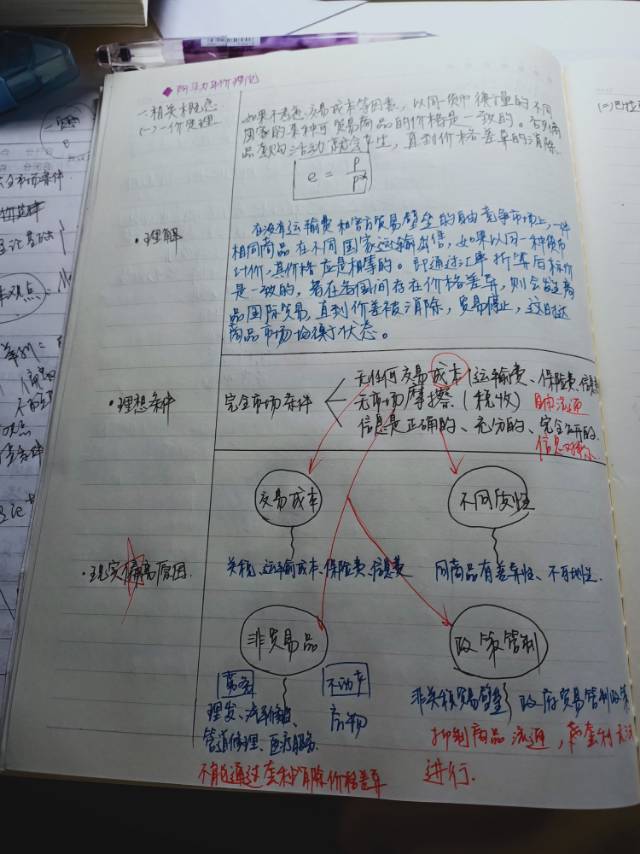 购买力平价理论
一、相关概念
(一)一价定理
如果不考虑交易成本等因素，以同一货币衡量的不同
国家的某种可贸易商品的价格是一致的。否则商
品套购活动就会发生，直到价格差异的消除.
e = P / P*
·理解
在没有运输费和官方贸易壁垒的自由竞争市场上，一件
相同商品在不同国家运输出售，如果以同一种货币
计价，其价格应是相等的。即通过汇率折算后标价
是一致的，若在各国间存在价格差异，则会发生商
品国际贸易，直到价差被消除，贸易停止，这时达
商品市场均衡状态。
·理想条件
完全市场条件
无任何交易成本(运输费、保险费、信息
无市场摩擦(税收) 自由流通
信息是正确的、充分的、完全公开的.
信息对称
·现实偏离原因
交易成本
不同质性
关税、运输成本、保险费、信息费
同商品有差异性、不可比性.
非贸易品
政策管制
不动产
非关税贸易壁垒 政府贸易管制政策
理发、汽车修理、
房物
管道修理、医疗服务.
抑制商品流通，套利无法
进行.
不能通过套利消除价格差异
(二)